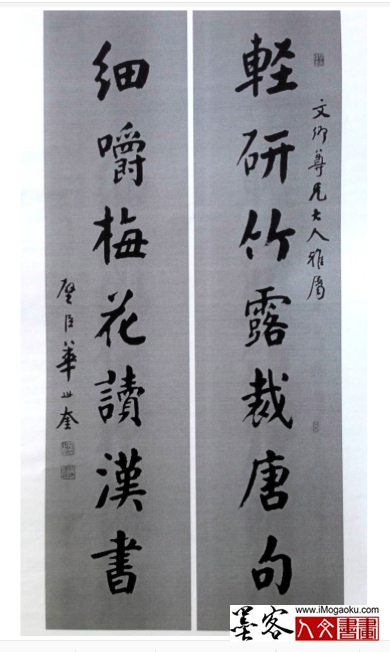 文卿尊兄大人雅属
軽研竹露裁唐句
細嚼梅花讀漢書
璧臣華世奎
www.iMogaoku.com
墨客人文書畫